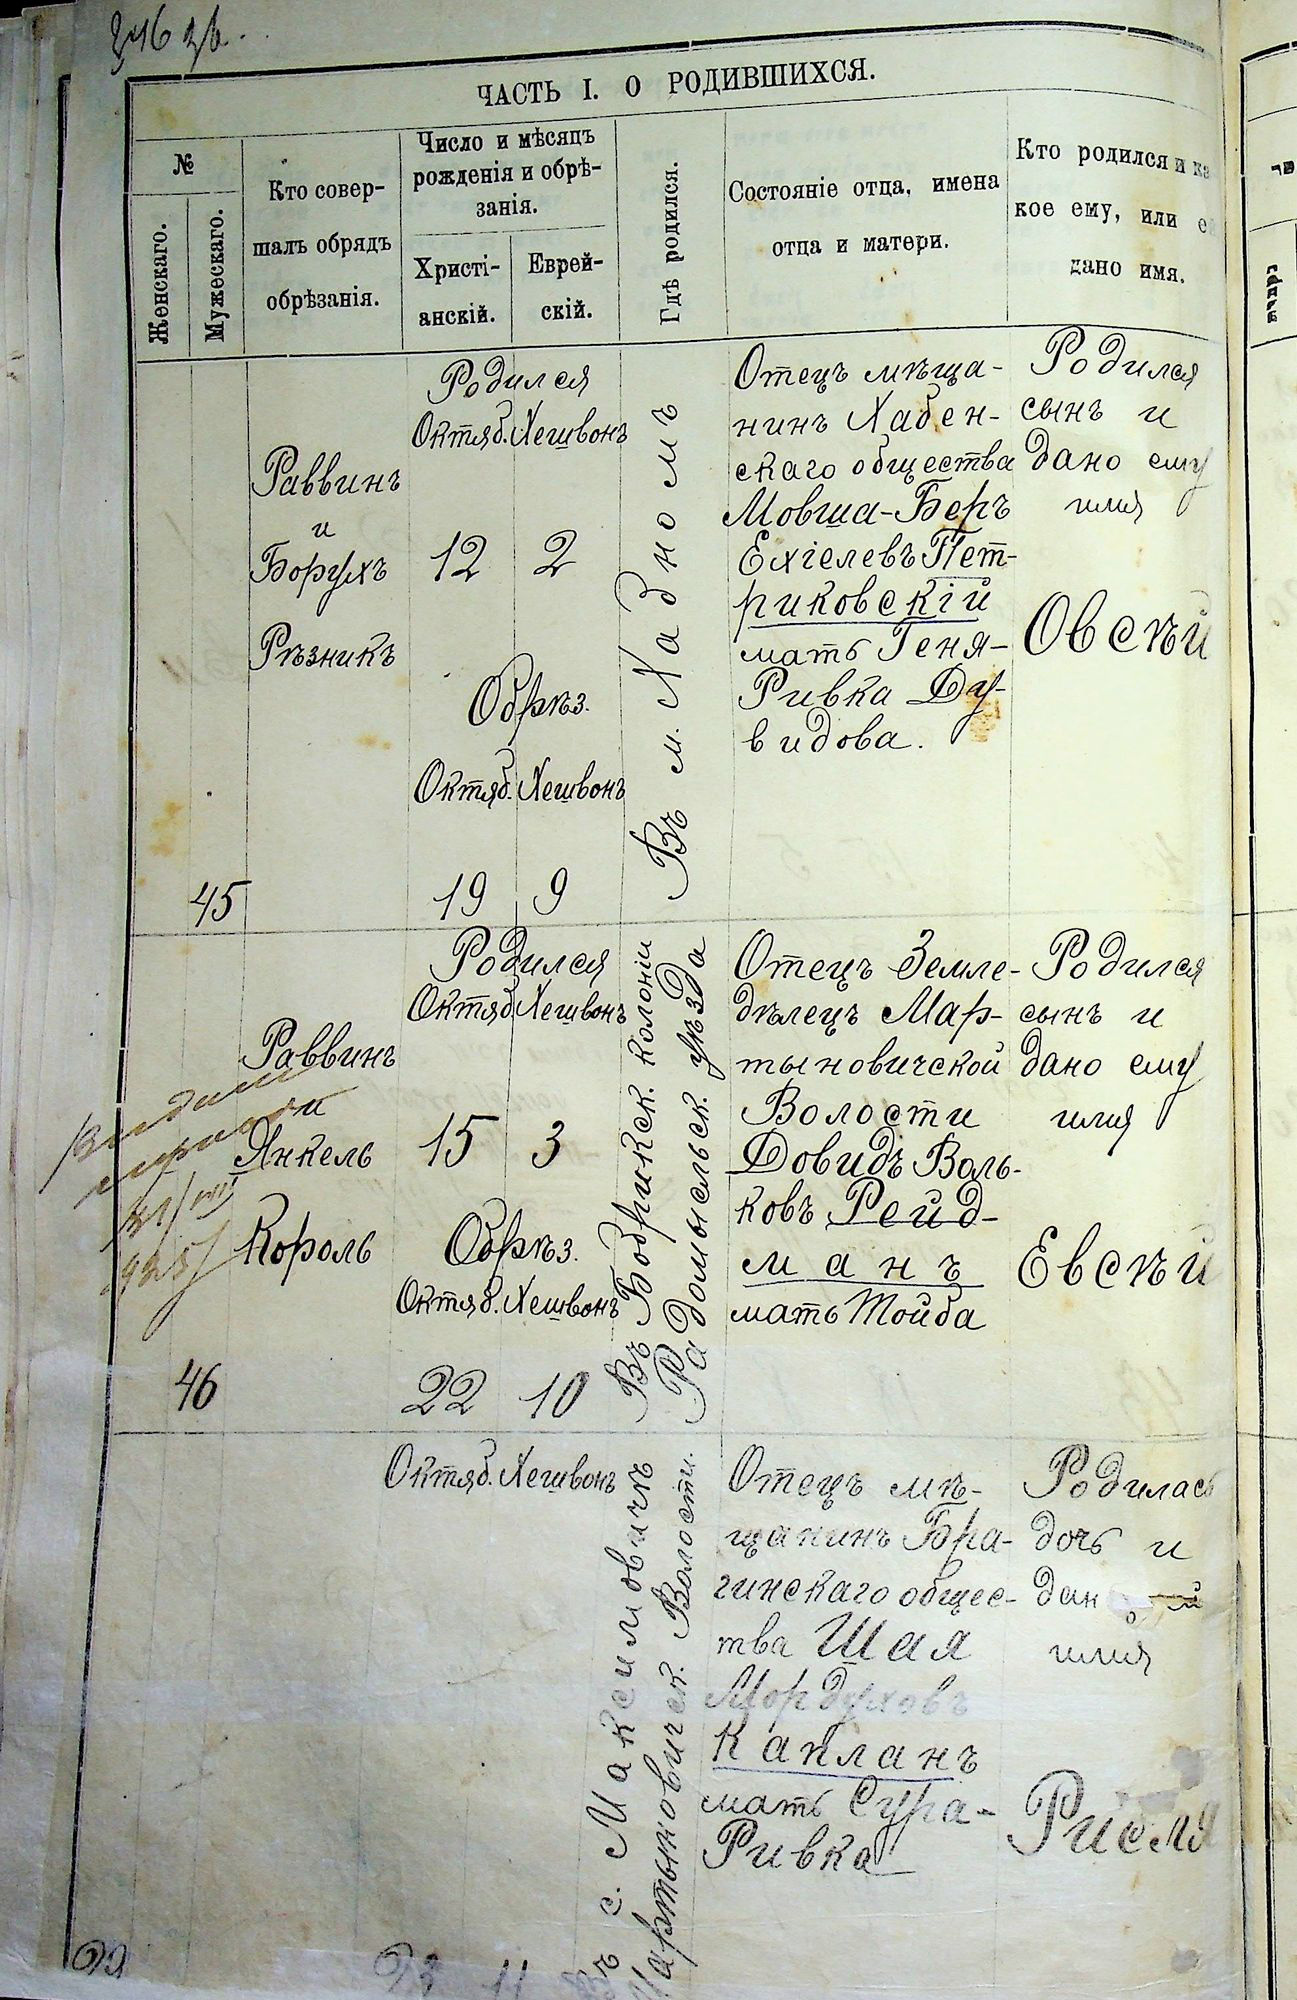 ЧАСТЬ I. О РОДИВШИХСЯ.
№
Женскаго.
Мужескаго.
Кто совер-
шалъ обрядъ
обрѣзанія.
Число и мѣсяцъ
рожденія и обрѣ-
занія.
Христі-
анскій.
Еврей-
скій.
Гдѣ родился.
Состояніе отца, имена
отца и матери.
Кто родился и ка
кое ему, или е
дано имя.
45
Раввинъ
и
Борухъ
Рѣзникъ
Родился
Октяб. Хешвонъ
12 2
Обрѣз.
Октяб. Хешвонъ
19 9
Въ м. Хабномъ
Отецъ мѣща-
нинъ Хабен-
скаго общества
Мовша-Беръ
Ехіелевъ Пет-
риковскій
мать Геня-
Ривка Ду-
видова.
Родился
сынъ и
дано ему
имя
Овсѣй
46
Раввинъ
и
Янкель
Король
Родился
Октяб. Хешвонъ
15 3
Обрѣз.
Октяб. Хешвонъ
22 10
Въ Бобрикск. колоніи
Радомысльск. уѣзда
Отецъ Земле-
дѣлецъ Мар-
тыновичской
Волости
Довидъ Воль-
ковъ Рейд-
манъ
мать Тойба
Родился
сынъ и
дано ему
имя
Евсѣй
22
Октяб. Хешвонъ
23 11
Въ с. Максимовичъ
Мартыновичск. Волости.
Отецъ мѣ-
щанинъ Бра-
гинскаго общес-
тва Шая
Мордуховъ
Капланъ
мать Сура-
Ривка
Родилась
дочь и
дано ей
имя
Рисля